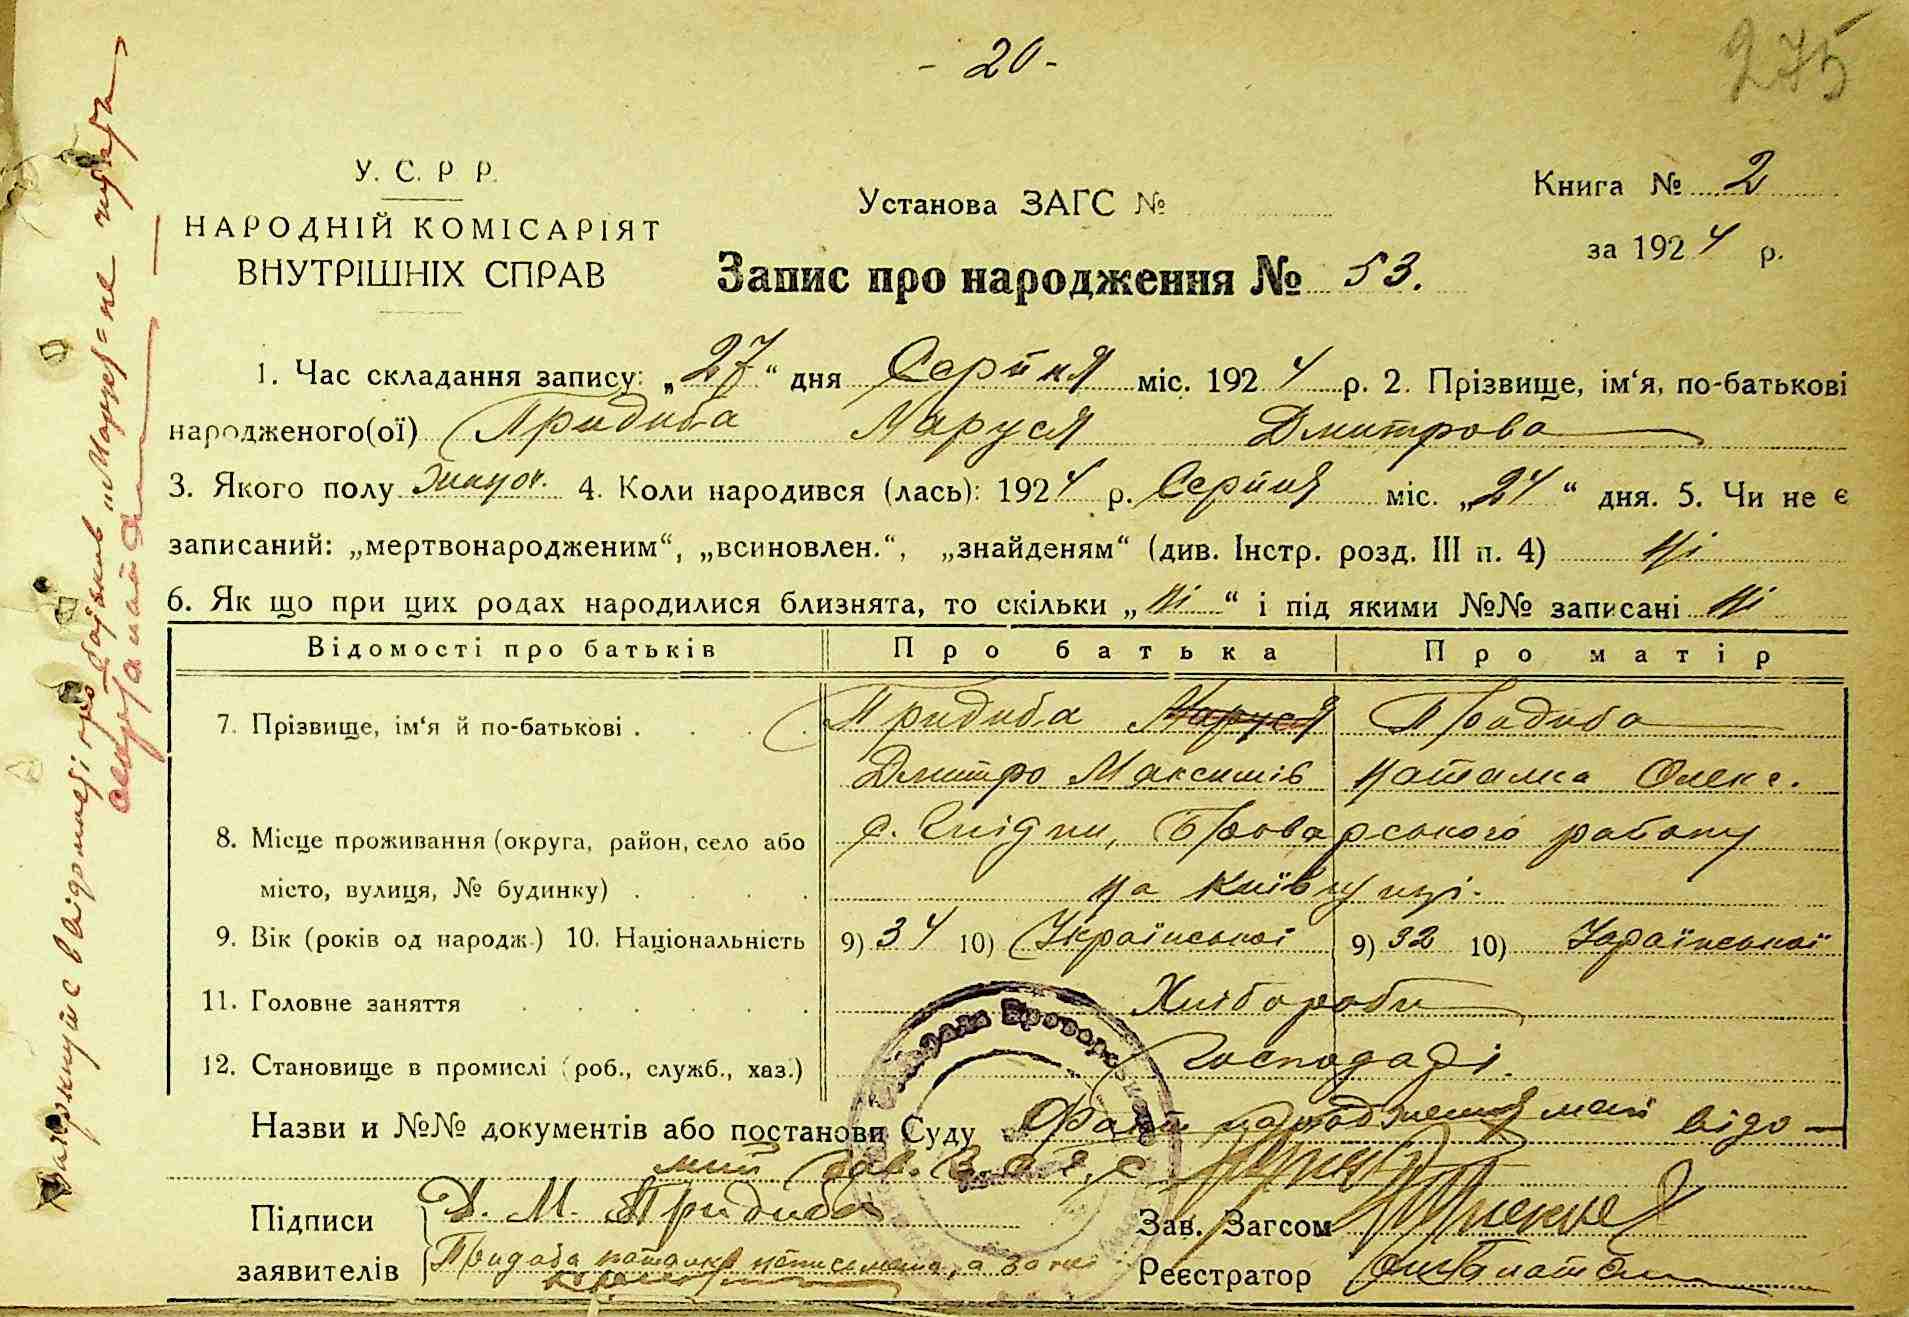 - 20 -
275
У. С. Р. Р.
НАРОДНІЙ КОМІСАРІЯТ
ВНУТРІШНІХ СПРАВ
Установа ЗАГС №
Книга № 2
за 1924 р.
Запис про народження № 53.
1. Час складання запису: „27“ дня Серпня міс. 1924 р. 2. Прізвище, ім‘я, по-батькові
народженого(ої) Придиба Маруся Дмитрова
3. Якого полу жиноч. 4. Коли народився (лась): 1924 р. Серпня міс. „24“ дня. 5. Чи не є
записаний: „мертвонародженим“, „всиновлен.“, „знайденям“ (див. Інстр. розд. III п. 4) ні
6. Як що при цих родах народилися близнята, то скільки „ні“ і під якими №№ записані ні
Відомості про батьків Про батька Про матір
7. Прізвище, ім‘я й по-батькові . Придиба Маруся Придиба
Дмитро Максимів Наталка Олекс.
8. Місце проживання (округа, район, село або с. Гнідин, Броварського району
місто, вулиця, № будинку) . на Київщині.
9. Вік (років од народж.) 10. Національність 9) 34 10) Української 9) 32 10) Української
11. Головне заняття Хлібороби
12. Становище в промислі (роб., служб., хаз.) Господарі.
Назви и №№ документів або постанови Суду Факт народження мені відо-
мий Зав. З.А.Г.С.
Підписи Д. М. Придиба Зав. Загсом
заявителів Придиба Наталка неписьмена, а за неі Реєстратор